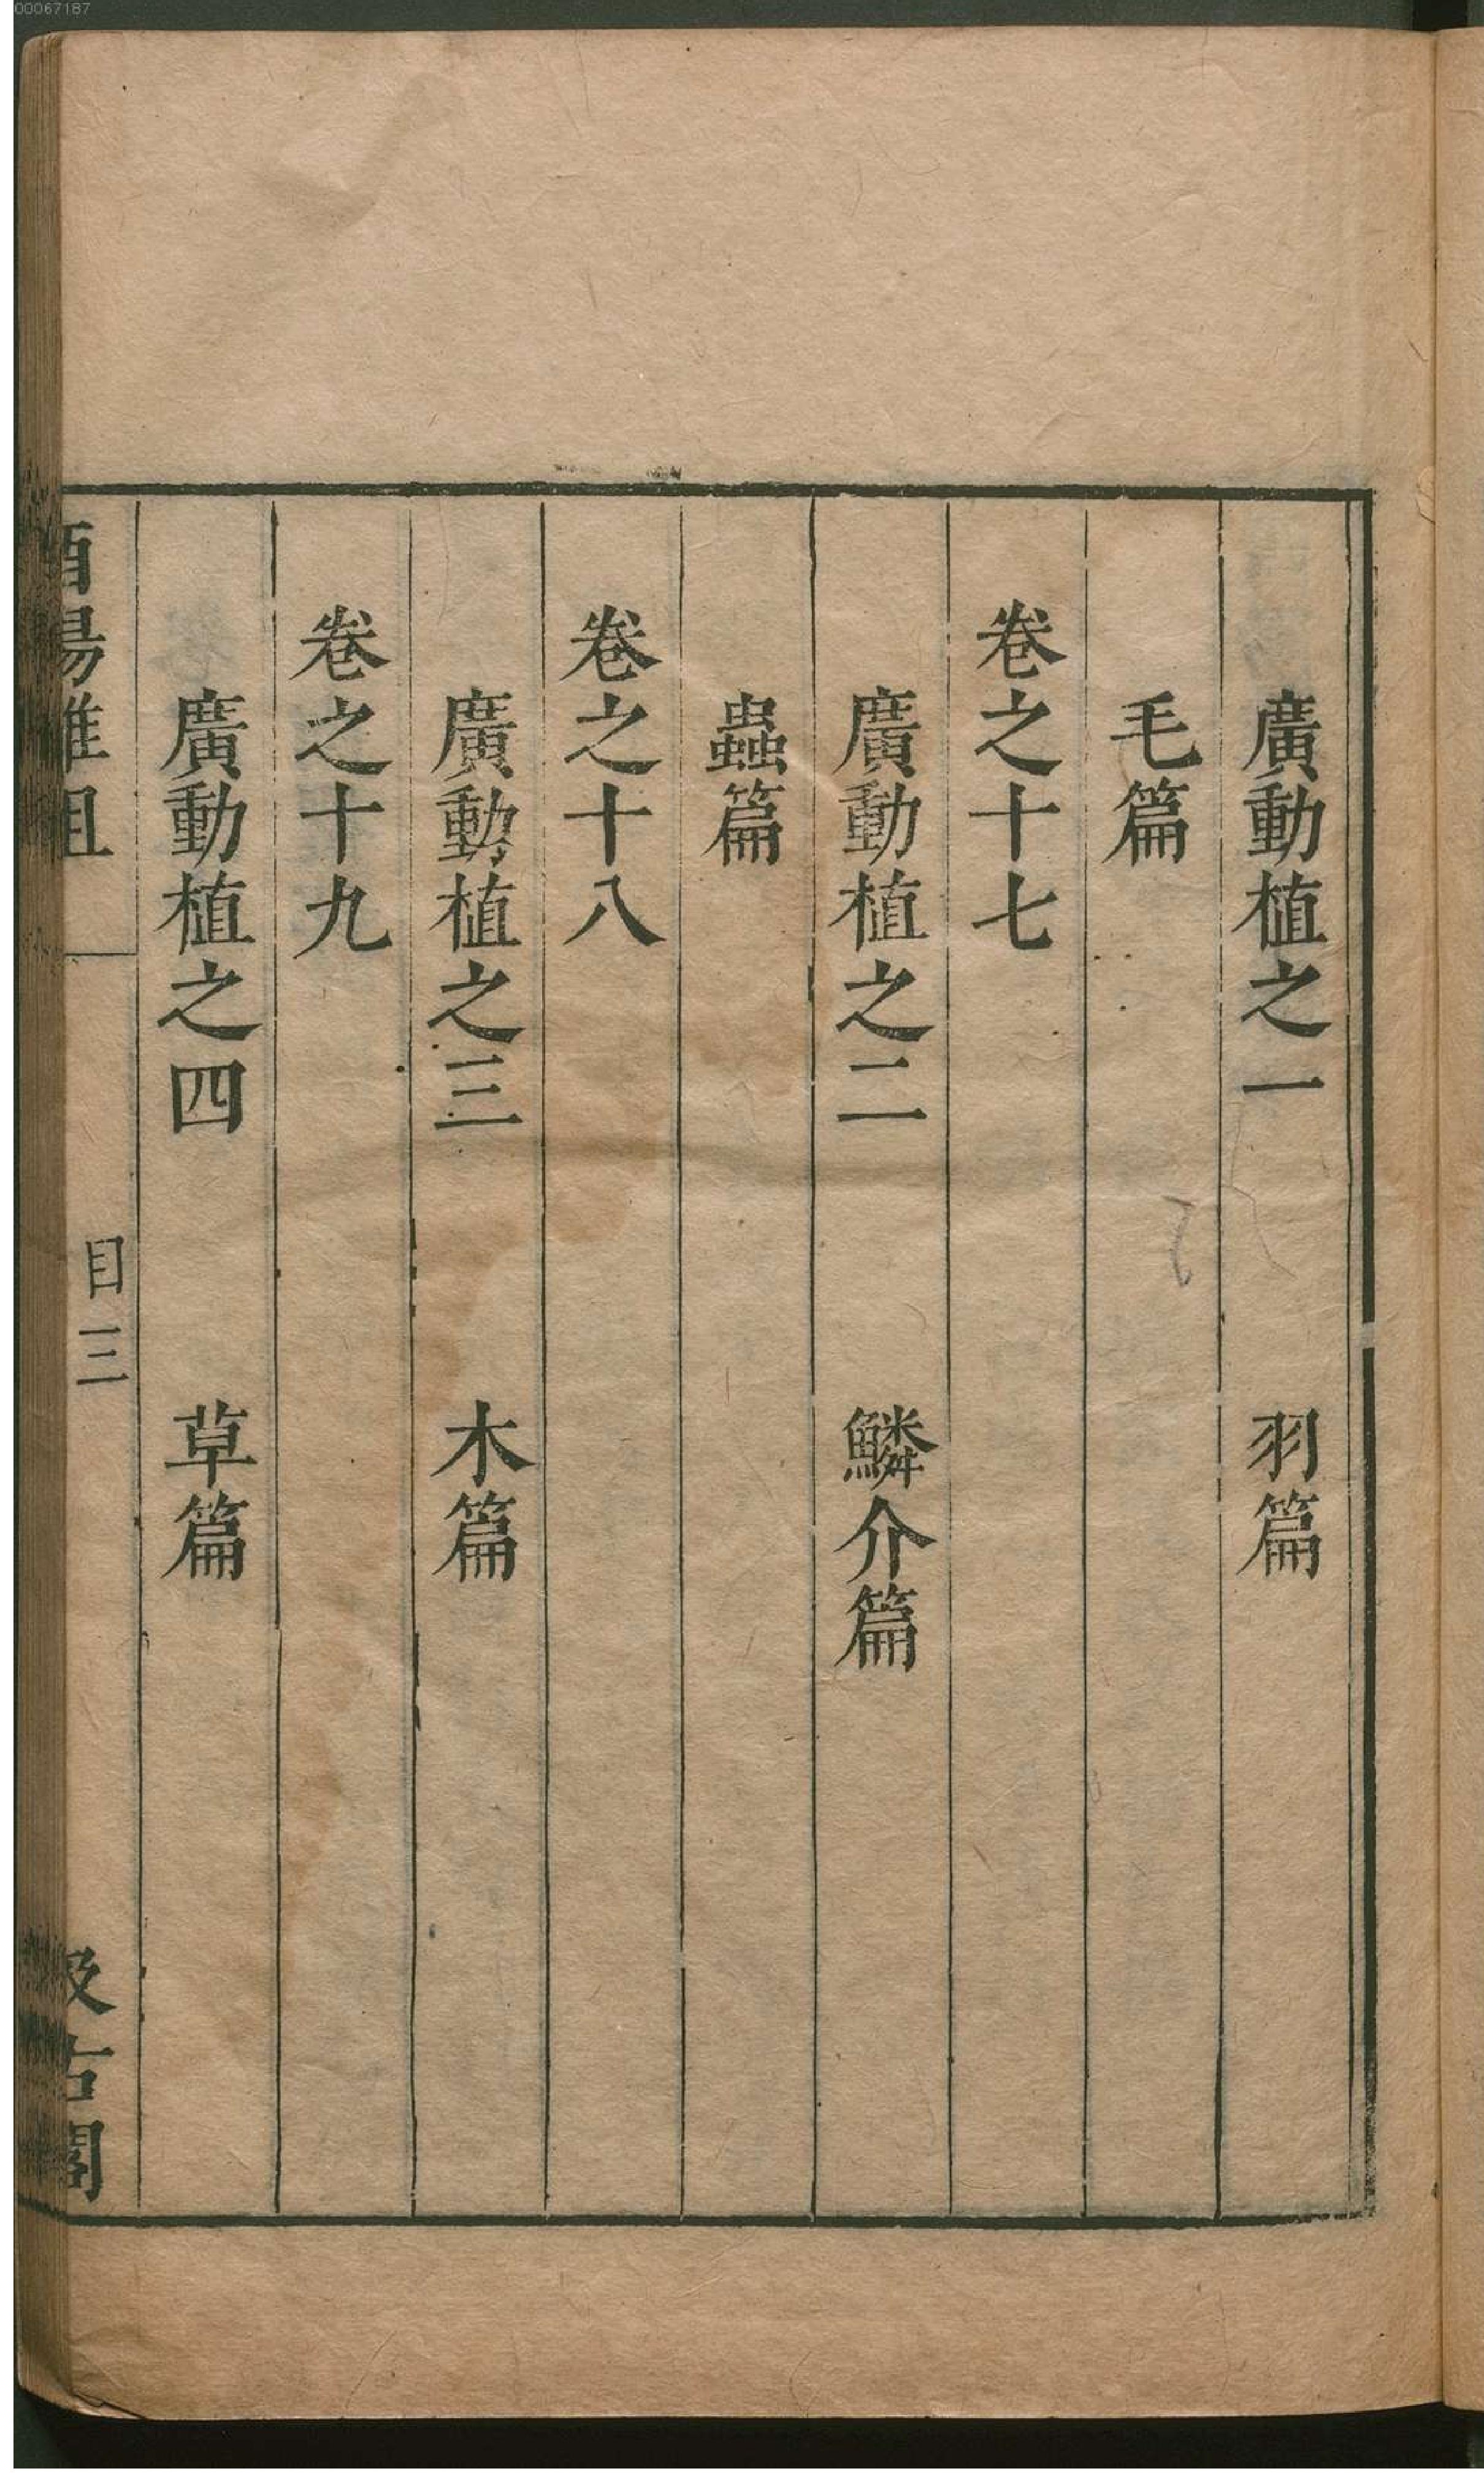 00067187
廣動植之一　羽篇
毛篇
卷之十七
廣動植之二　鱗介篇
蟲篇
卷之十八
廣動植之三　木篇
卷之十九
廣動植之四　草篇
酉陽雜俎　目三　汲古閣